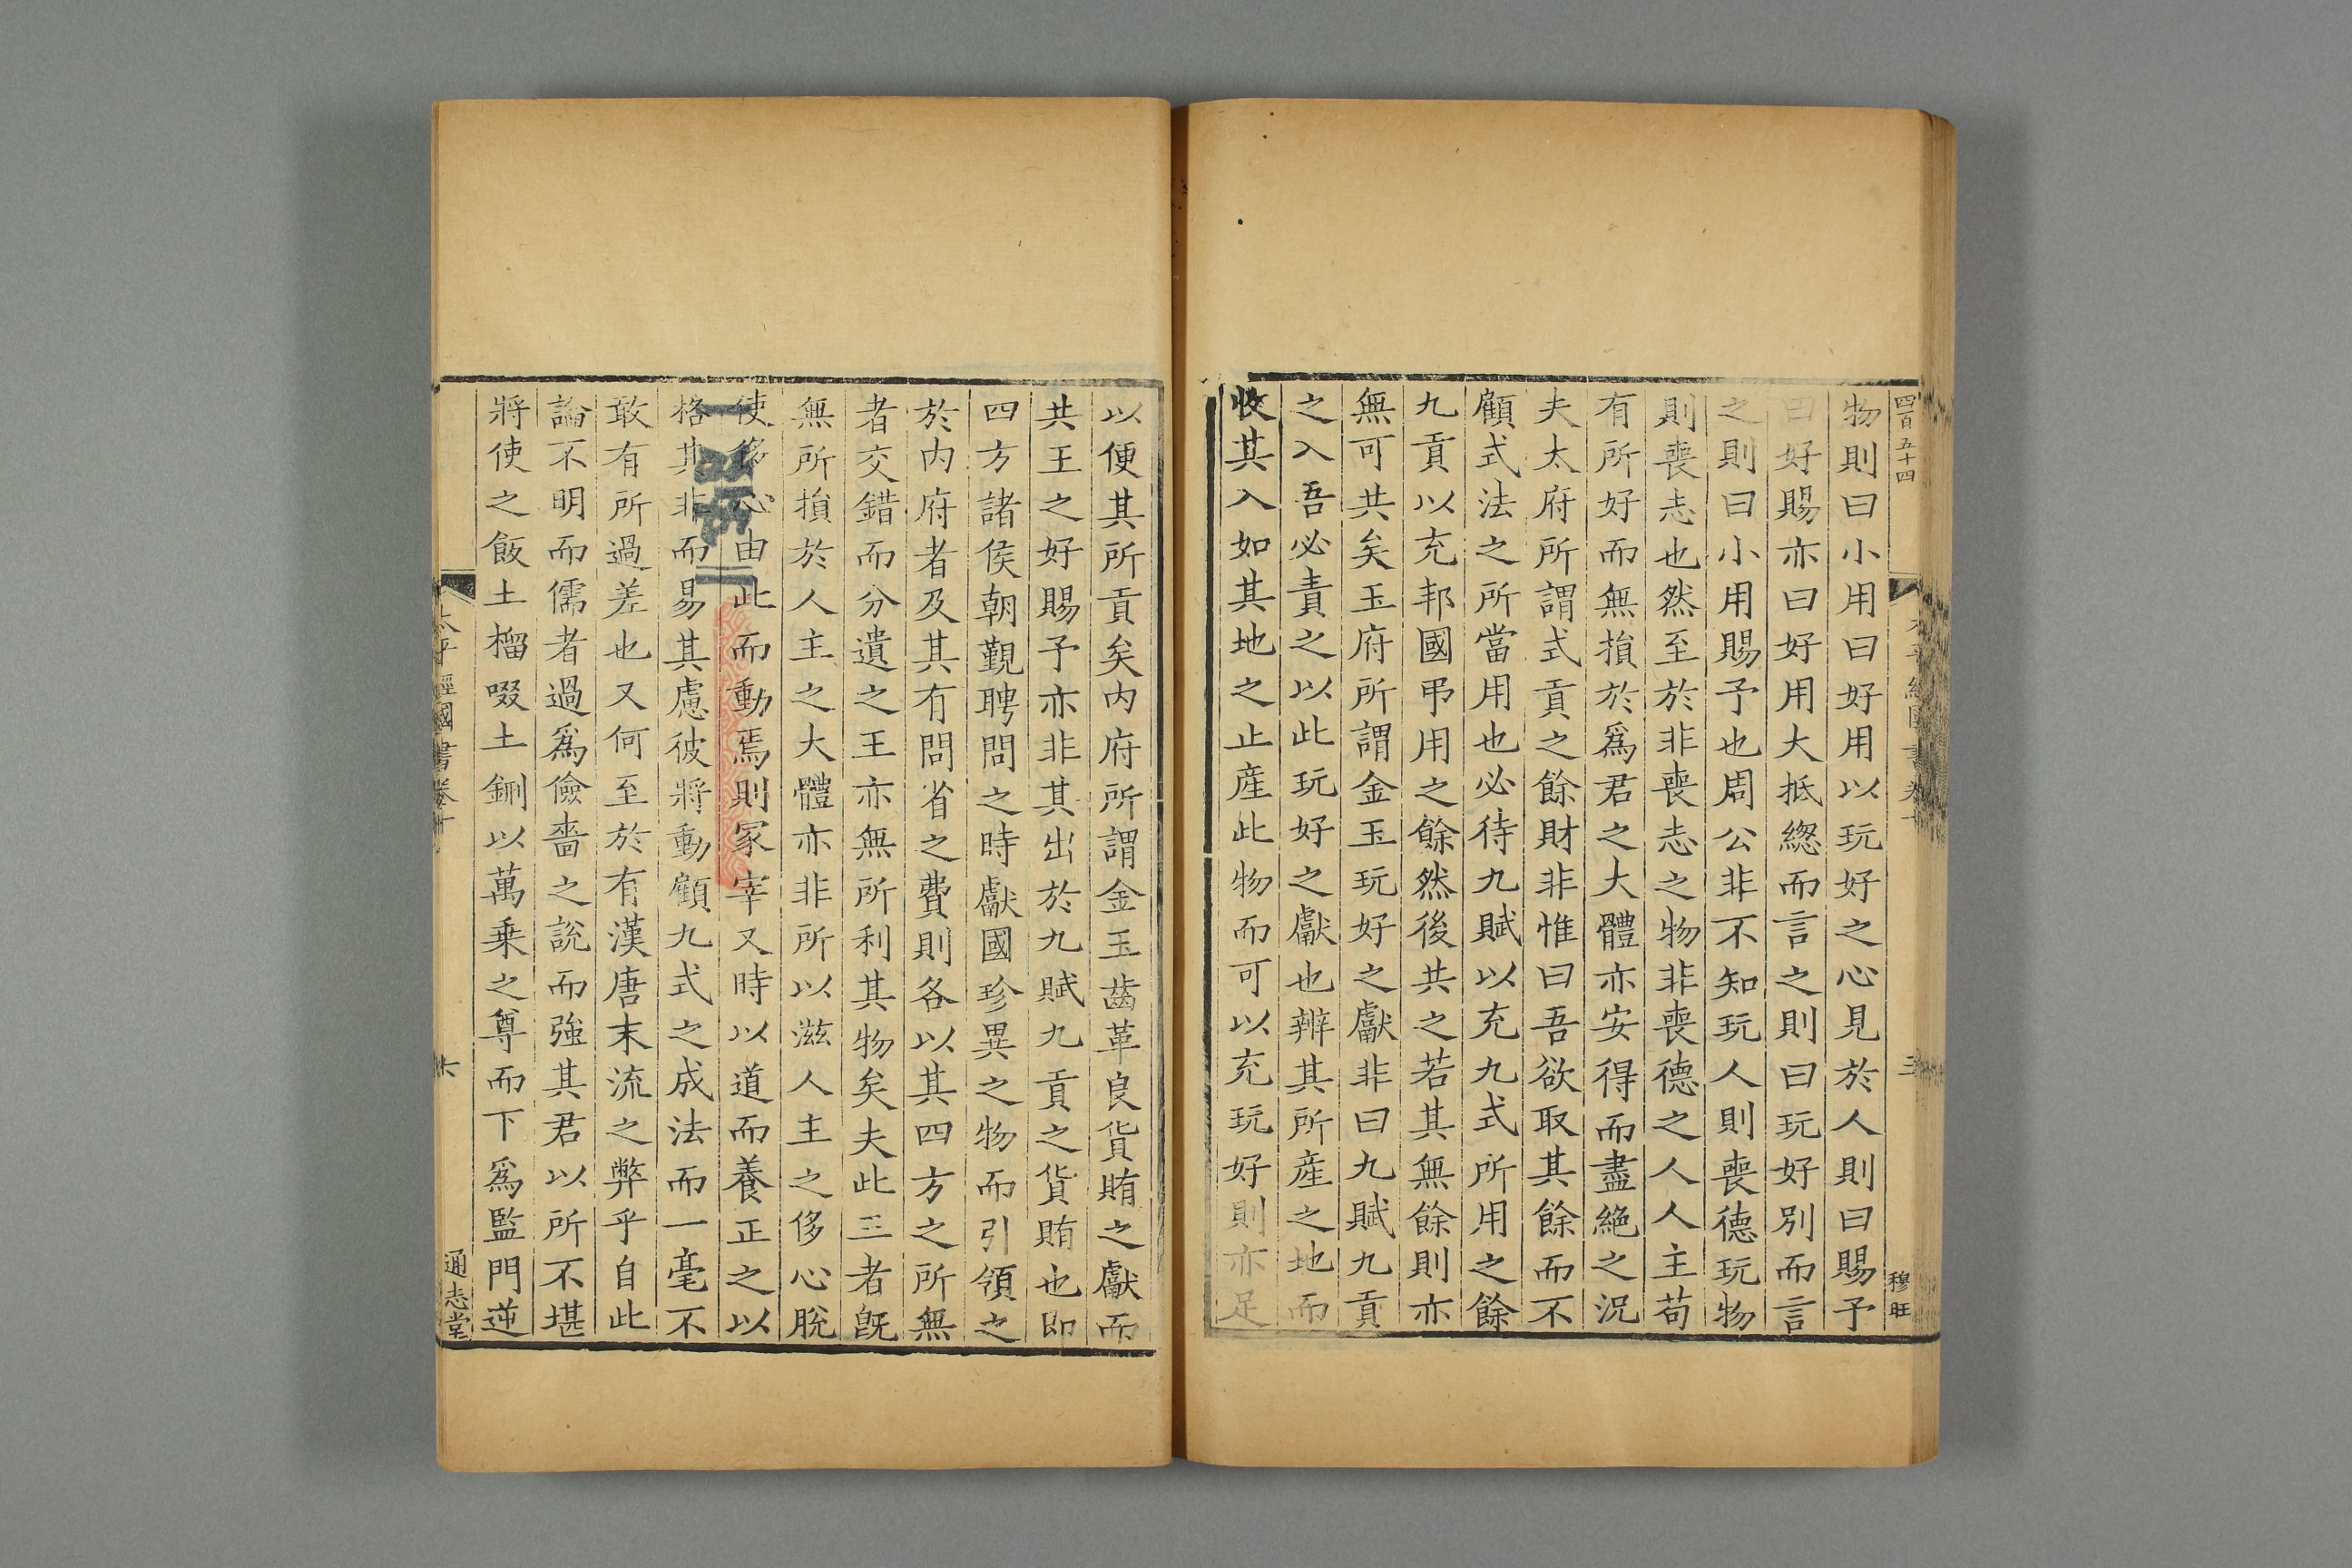 四百五十四
穆旺
物則曰小用曰好用以玩好之心見於人則曰賜予
曰好賜亦曰好用大抵緫而言之則曰玩好別而言
之則曰小用賜予也周公非不知玩人則喪德玩物
則喪志也然至於非喪志之物非喪德之人人主苟
有所好而無損於爲君之大體亦安得而盡絕之況
夫太府所謂式貢之餘財非惟曰吾欲取其餘而不
顧式法之所當用也必待九賦以充九式所用之餘
九貢以充邦國弔用之餘然後共之若其無餘則亦
無可共矣玉府所謂金玉玩好之獻非曰九賦九貢
之入吾必責之以此玩好之獻也辨其所產之地而
收其入如其地之止產此物而可以充玩好則亦足
以便其所貢矣内府所謂金玉齒革良貨賄之獻而
共王之好賜予亦非其出於九賦九貢之貨賄也即
四方諸侯朝覲聘問之時獻國珍異之物而引領之
於内府者及其有問省之費則各以其四方之所無
者交錯而分遺之王亦無所利其物矣夫此三者旣
無所損於人主之大體亦非所以滋人主之侈心脫
使侈心由此而動焉則冢宰又時以道而養正之以
格其非而易其慮彼將動顧九式之成法而一毫不
敢有所過差也又何至於有漢唐末流之弊乎自此
論不明而儒者過爲儉嗇之說而強其君以所不堪
將使之飯土橊啜土鉶以萬乗之尊而下爲監門逆
太平經國書卷十
通志堂